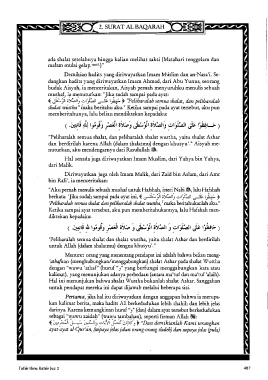 2. SURAT AL BAQARAH
ada shalat setelahnya hingga kalian melihat saksi (Matahari tenggelam dan
malam mulai gelap."
Demikian hadits yang diriwayatkan Imam Muslim dan an-Nasa'i. Se-
dangkan hadits yang diriwayatkan Imam Ahmad, dari Abu Yunus, seorang
budak Aisyah, ia menceritakan, Aisyah pernah menyuruhku menulis sebuah
mushaf, ia menuturkan: "Jika sudah sampai pada ayat:
﴿ حَافِظُوا عَلَى الصَّلَوَاتِ وَالصَّلَاةِ الْوُسْطَى ﴾ "Peliharalah semua shalat, dan peliharalah
shalat wustha" maka beritahu aku." Ketika sampai pada ayat tersebut, aku pun
memberitahunya, lalu beliau mendiktekan kepadaku:
( حَافِظُوا عَلَى الصَّلَوَاتِ وَالصَّلَاةِ الْوُسْطَى وَصَلَاةِ الْعَصْرِ وَقُومُوا لِلَّهِ قَانِتِينَ. )
"Peliharalah semua shalat, dan peliharalah shalat wustha, yaitu shalat Ashar
dan berdirilah karena Allah (dalam shalatmu) dengan khusyu'." Aisyah me-
nuturkan, aku mendengarnya dari Rasulullah ﷺ.
Hal senada juga diriwayatkan Imam Muslim, dari Yahya bin Yahya,
dari Malik.
Diriwayatkan juga oleh Imam Malik, dari Zaid bin Aslam, dari Amr
bin Rafi', ia menceritakan:
"Aku pernah menulis sebuah mushaf untuk Hafshah, isteri Nabi ﷺ, lalu Hafshah
berkata: 'Jika sudah sampai pada ayat ini, ﴿ حَافِظُوا عَلَى الصَّلَوَاتِ وَالصَّلَاةِ الْوُسْطَى ﴾
'Peliharalah semua shalat dan peliharalah shalat wustha,' maka beritahukanlah aku.'
Ketika sampai ayat tersebut, aku pun memberitahukannya, lalu Hafshah men-
diktekan kepadaku:
( حَافِظُوا عَلَى الصَّلَوَاتِ وَ الصَّلَاةِ الْوُسْطَى وَ صَلَاةِ الْعَصْرِ وَقُومُوا لِلَّهِ قَانِتِينَ. )
'Peliharalah semua shalat dan shalat wustha, yaitu shalat Ashar dan berdirilah
untuk Allah (dalam shalatmu) dengan khusyu'.'"
Menurut orang yang menentang pendapat ini adalah bahwa beliau meng-
'athafkan (menghubungkan/menggabungkan) shalat Ashar pada shalat Wustha
dengan "wawu 'athaf"
kalimat), yang menunjukkan adanya perbedaan
Hal ini menunjukkan bahwa shalat Wustha bukanlah shalat Ashar. Sanggahan
untuk pendapat mereka ini dapat dijawab melalui beberapa sisi:
Pertama, jika hal itu diriwayatkan dengan anggapan bahwa ia merupa-
kan kalimat berita, maka hadits Ali berkedudukan lebih shahih dan lebih jelas
darinya. Karena kemungkinan huruf "و" (dan) dalam ayat tersebut berkedudukan
sebagai "wawu zaidah" (wawu tambahan), seperti firman Allah:
﴿ وَكَذَٰلِكَ نُفَصِّلُ الْآيَاتِ وَلِتَسْتَبِينَ سَبِيلُ الْمُجْرِمِينَ ﴾ "Dan demikianlah Kami terangkan
ayat-ayat al-Qur'an, (supaya jelas jalan orang-orang shaleh) dan supaya jelas (pula)
Tafsir Ibnu Katsir Juz 2
487